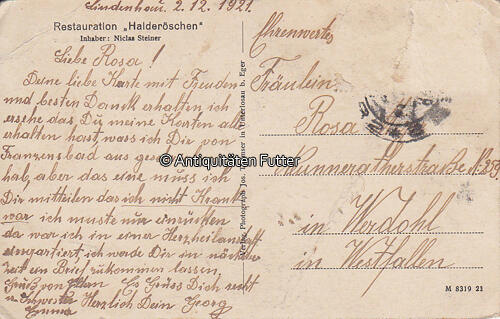 Lindenhau, 2.12.1921.
Restauration „Halderöschen“
Inhaber: Niclas Steiner
Liebe Rosa!
Deine liebe Karte mit Freuden
und besten Danck erhalten ich
ersehe das Du meine Karten alle
erhalten hast, was ich Dir von
Franzensbad aus geschrieben
hab, aber das eine muss ich
Dir mitteilen das ich nicht Krank
war ich muste nur einrücken
da war ich in einer Herzheilanstalt
einquartiert, ich werde Dir in nächster
zeit ein Brief zukommen lassen.
Gruß von Es Gruss Dich recht
u. Schwester Herzlich Dein Georg
Emma
Verlag Photograph Jos. in Unterlosau b. Eger
Ehrenwertes
Fräulein
Rosa
N. 239
in Werdohl
in Westfallen
M 8319 21
© Antiquitäten Futter